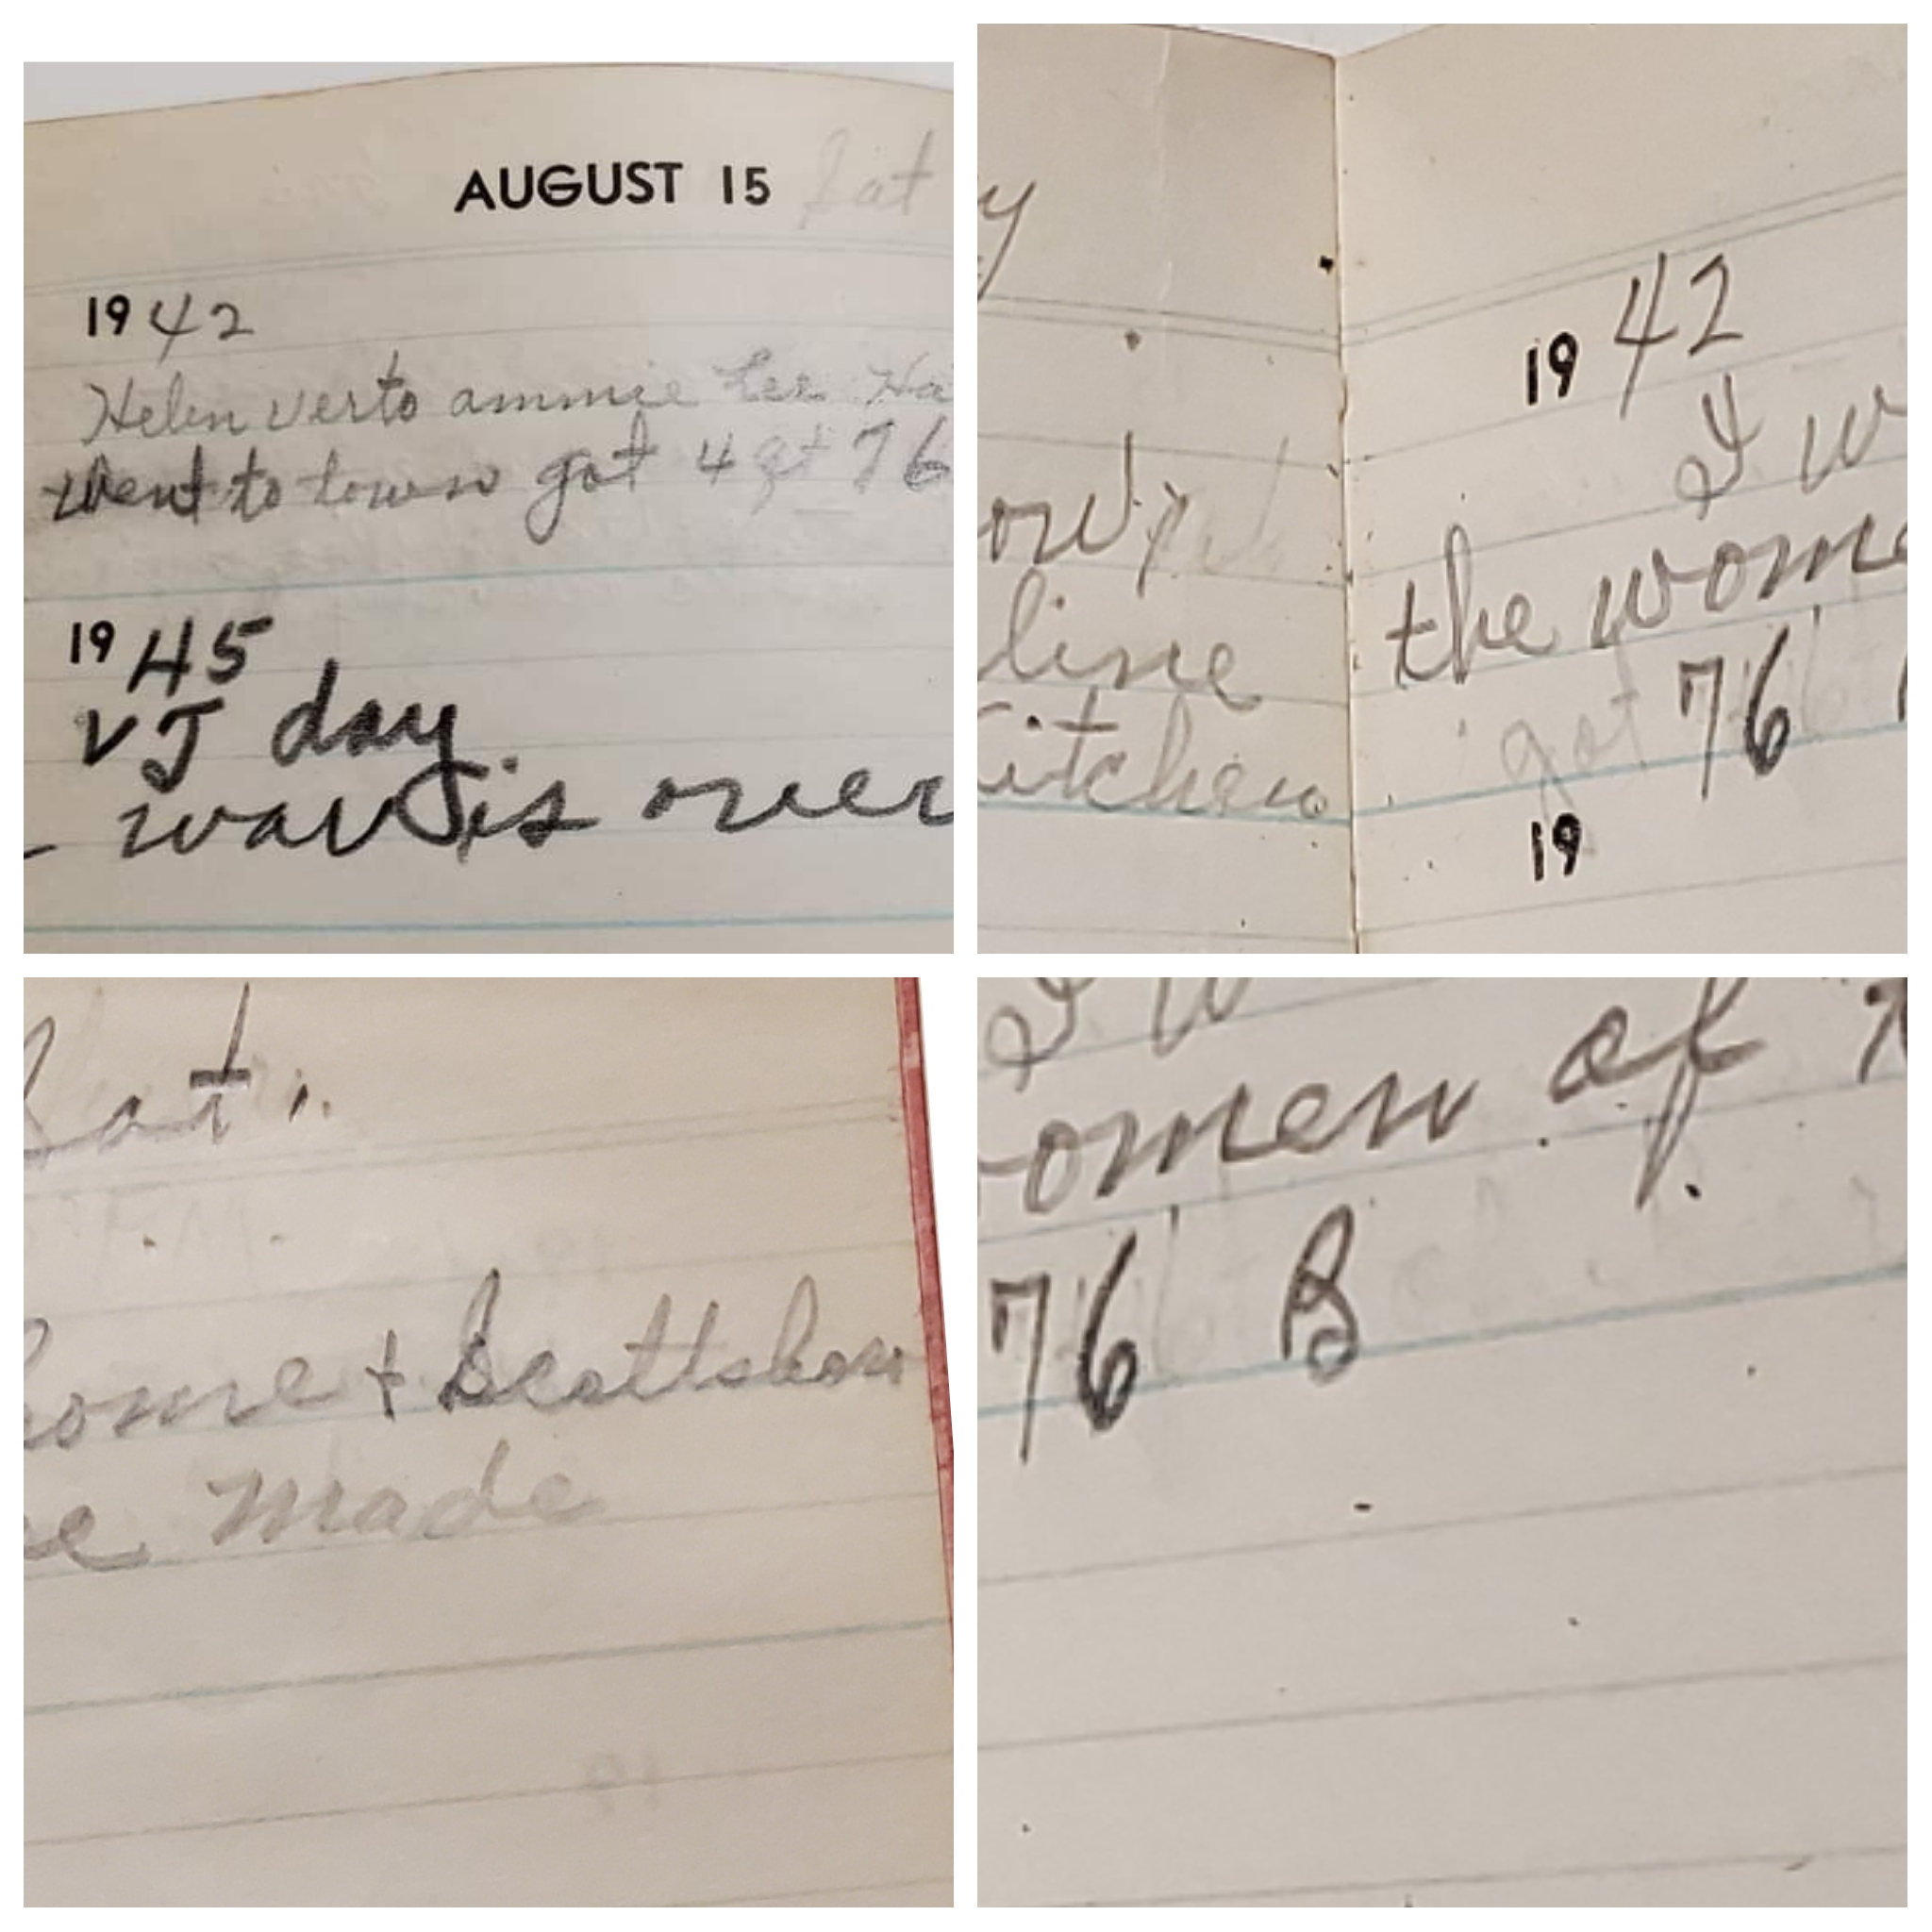 AUGUST 15 Sat
1942
Helen Verto ammie Lee Ha
went to town got 4 qt 76
1945
VJ day
war is over
y
line
itchen
1942
I w
the wome
got 76
19
Sat.
home + Scottsboro
e made
I w
omen of
76 B